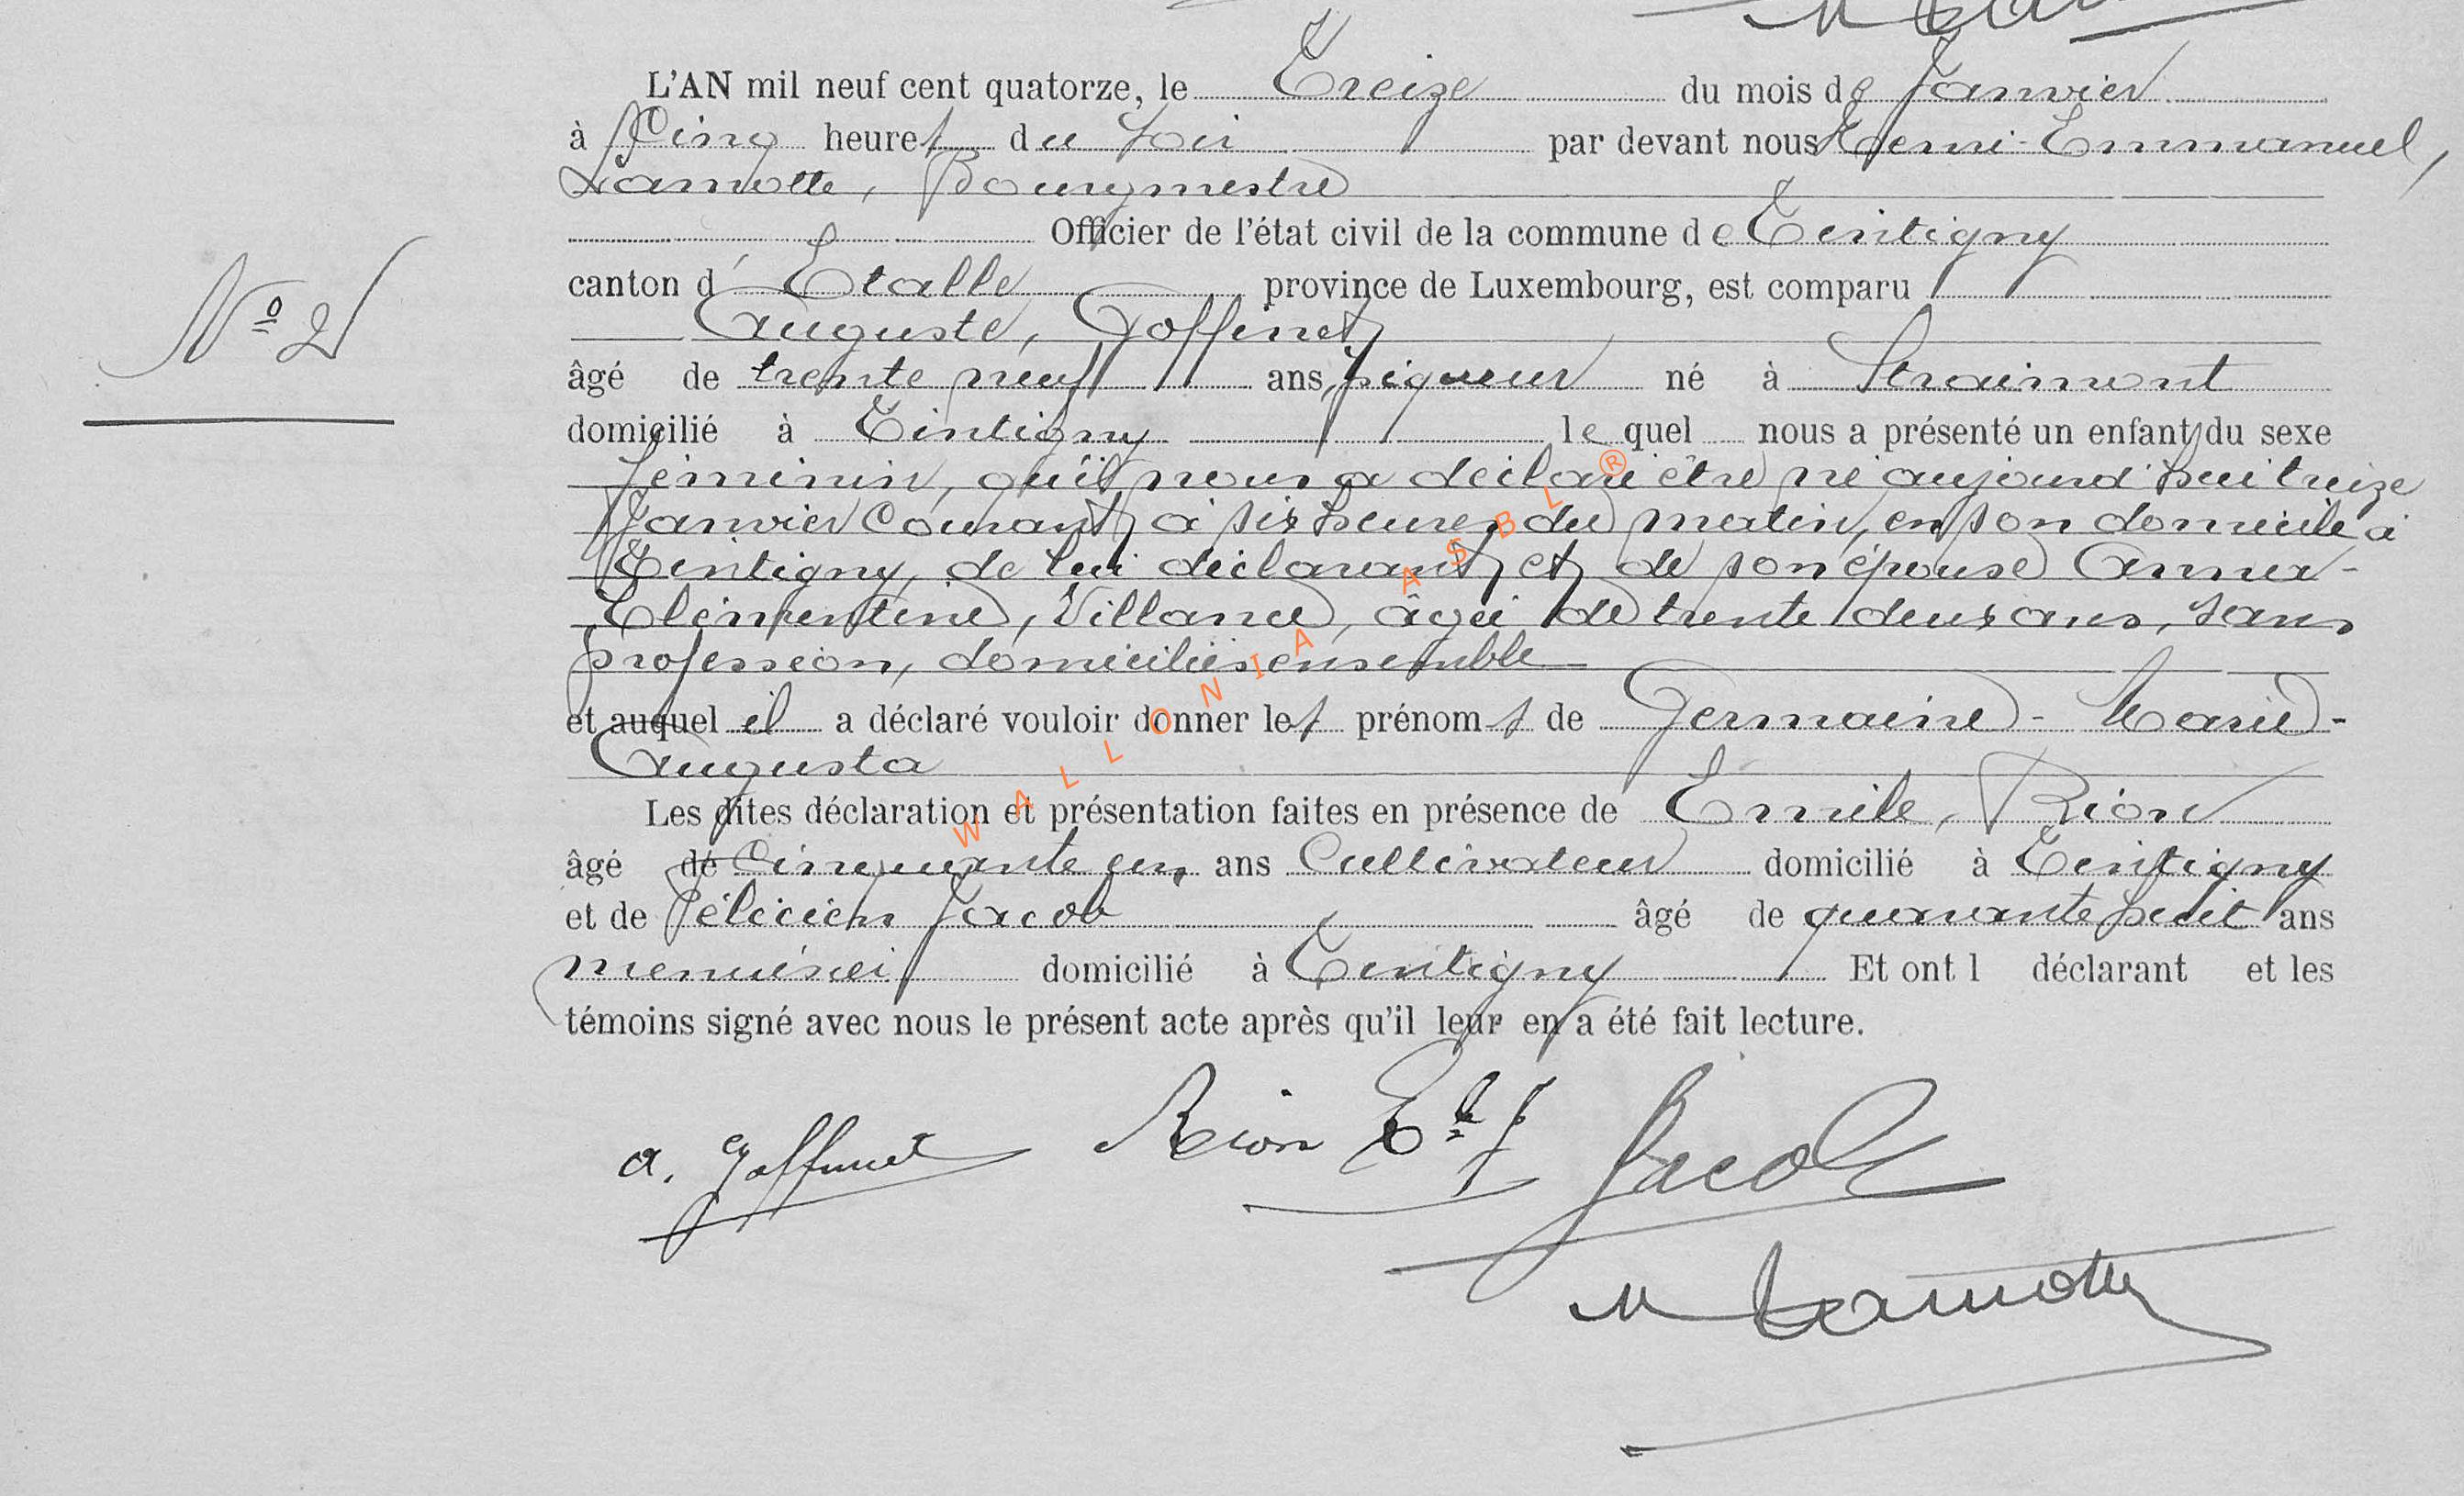 L'AN mil neuf cent quatorze, le Treize du mois de Janvier
à Cinq heures du soir par devant nous Henri-Emmanuel,
Lamotte, Bourgmestre
Officier de l'état civil de la commune de Tintigny
canton d'Etalle province de Luxembourg, est comparu
Auguste, Goffinet
âgé de trente neuf ans, piqueur né à Straimont
domicilié à Tintigny lequel nous a présenté un enfant du sexe
féminin, qu'il nous a déclaré être né aujourd'hui treize
Janvier courant, à six heures du matin, en son domicile à
Tintigny, de lui déclarant, et de son épouse Anna-
Clémentine, Villance, âgée de trente deux ans, sans
profession, domiciliés ensemble
et auquel il a déclaré vouloir donner les prénoms de Germaine-Marie-
Augusta
Les dites déclaration et présentation faites en présence de Emile, Rion
âgé de Cinquante un, ans Cultivateur domicilié à Tintigny
et de Félicien Jacob âgé de quarante huit ans
menuisier domicilié à Tintigny Et ont l déclarant et les
témoins signé avec nous le présent acte après qu'il leur en a été fait lecture.
N° 2
a. Goffinet Rion Jacob
Lamotte
WALLONIA ASBL ®